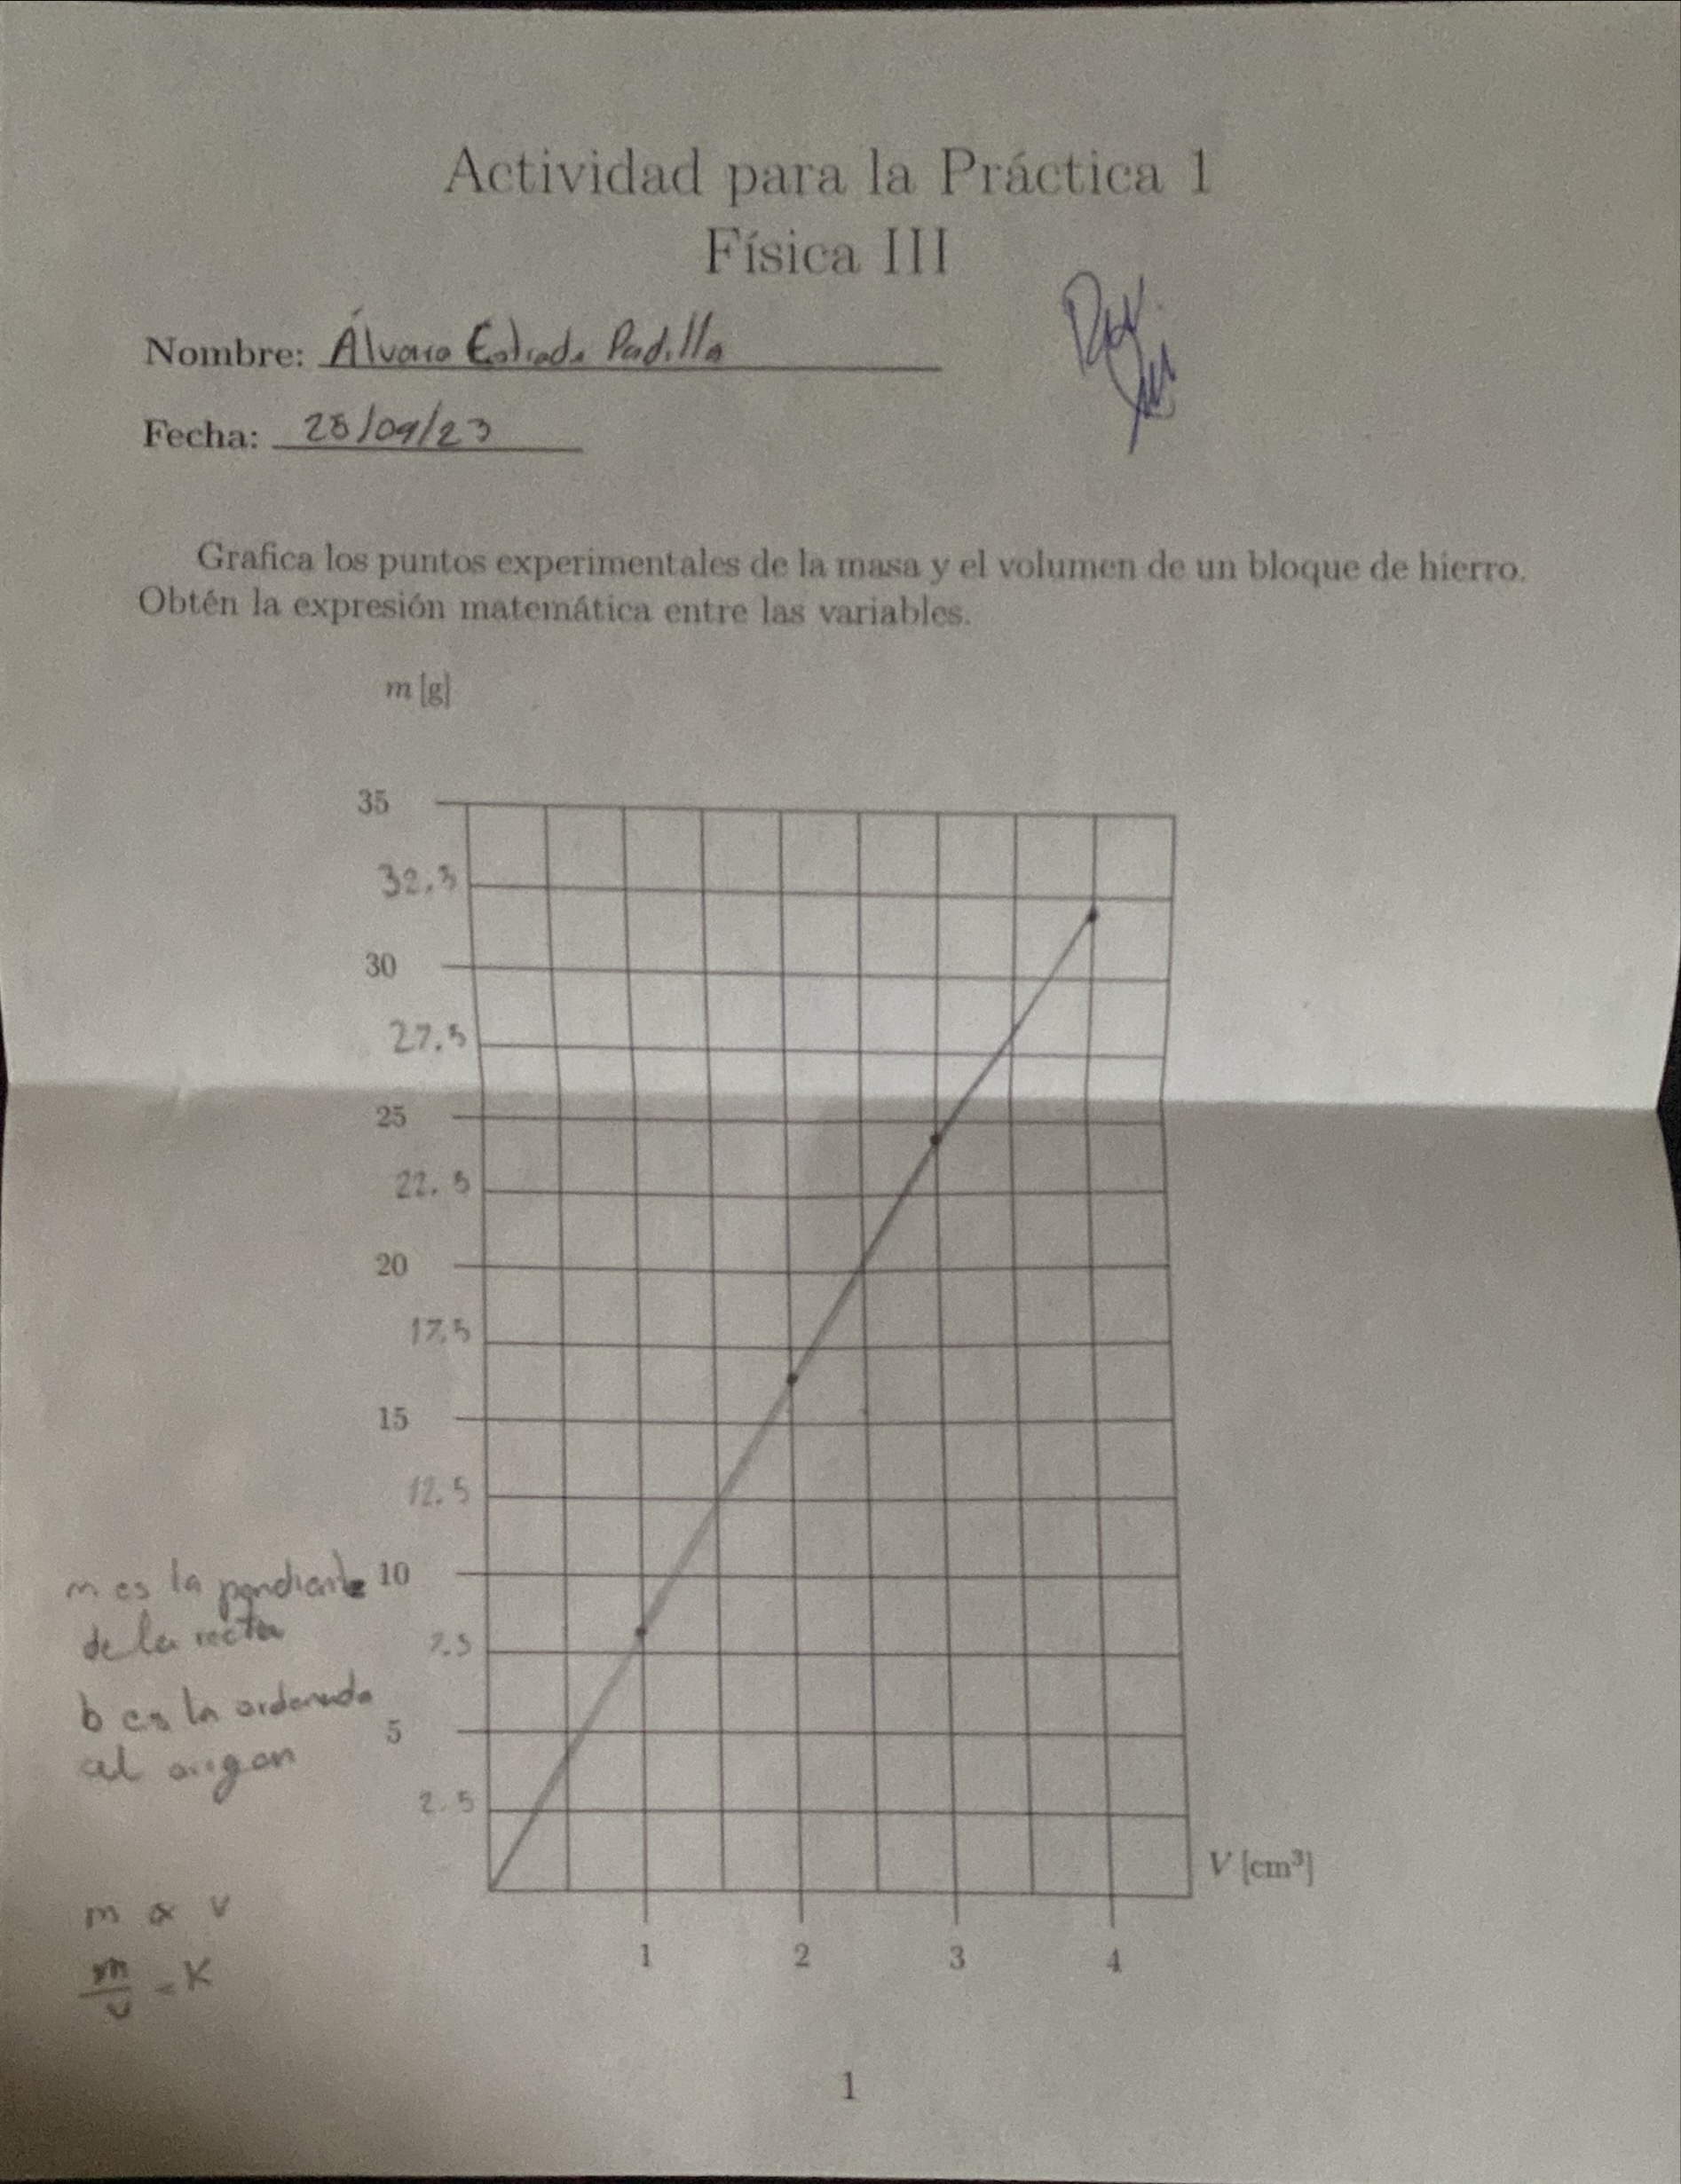 Actividad para la Práctica 1
Física III
Nombre: Álvaro Estrada Padilla
Fecha: 28/09/23
Grafica los puntos experimentales de la masa y el volumen de un bloque de hierro.
Obtén la expresión matemática entre las variables.
m [g]
35
32.5
30
27.5
25
22.5
20
17.5
15
12.5
10
m es la pendiente
de la recta
7.5
b es la ordenada
5
al origen
2.5
V [cm³]
m ∝ v
m/v = K
1 2 3 4
1